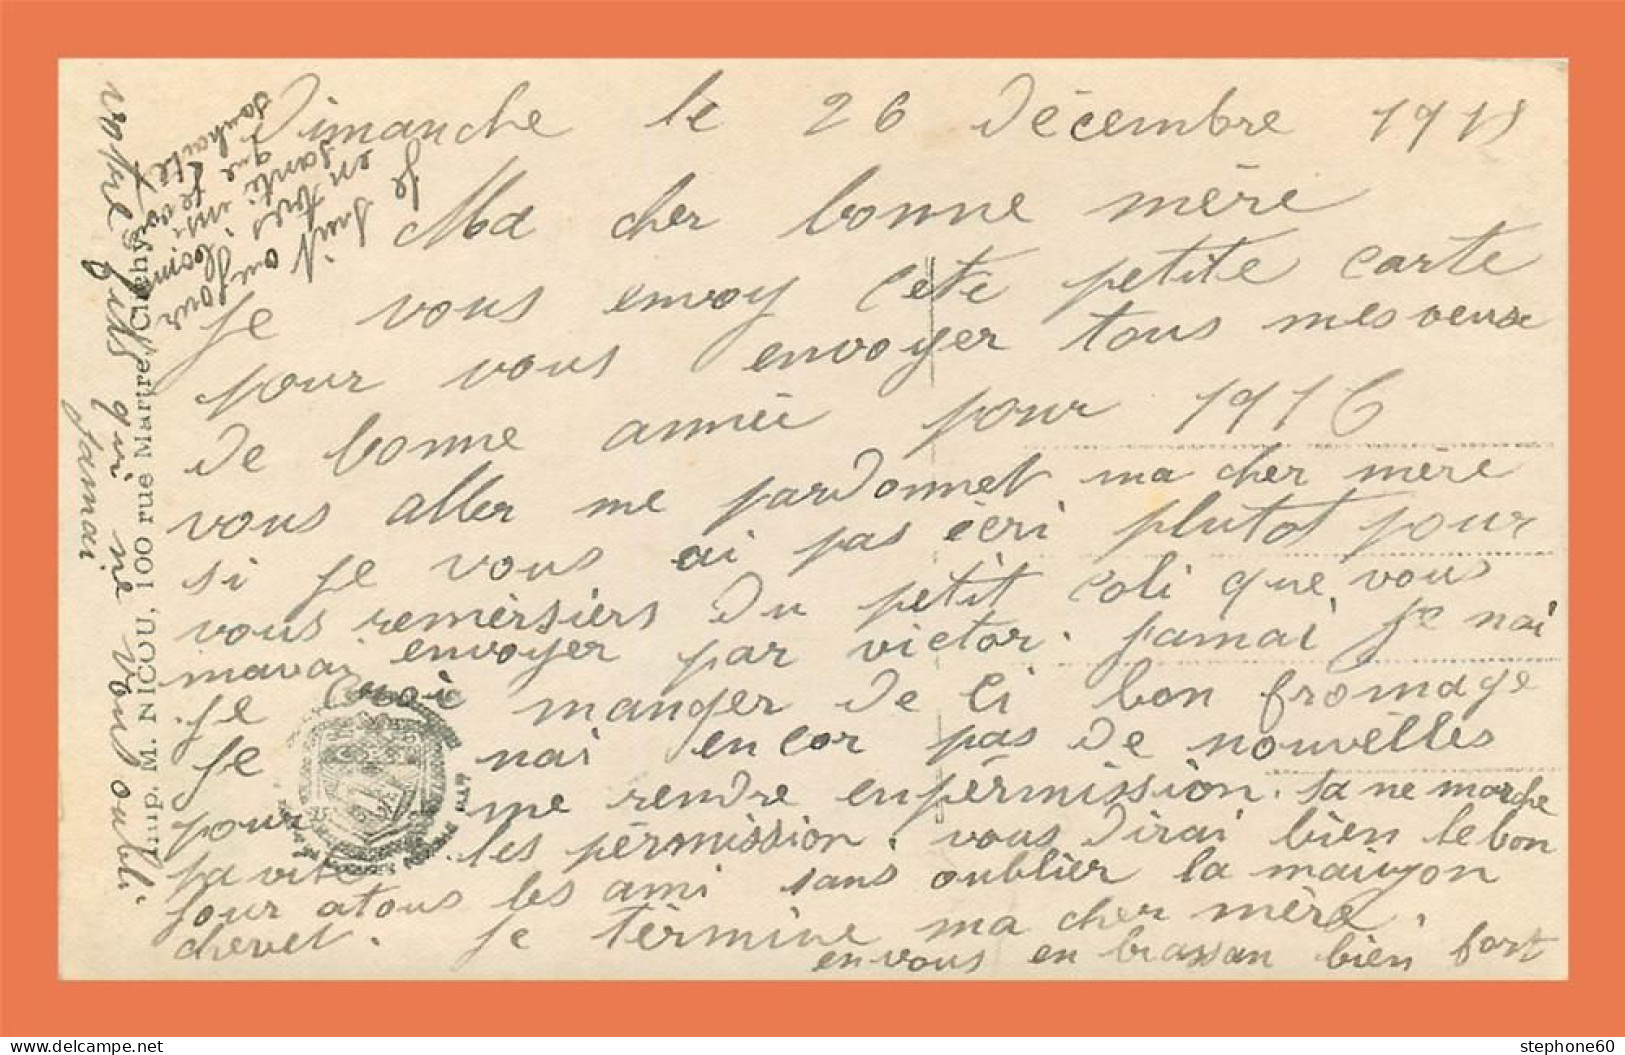 Dimanche le 26 Décembre 1915
Ma cher bonne mère
je vous envoy cete petite carte
pour vous envoyer tous mes veux
De bonne année pour 1916
vous aller me pardonnet ma cher mère
si je vous ai pas écri plutot pour
vous remèrsiers Du petit coli que vous
mavai envoyer par victor. jamai je nai
je manger De ci bon fromage
je nai encor pas De nouvèlles
pour me rendre enpérmission. sa ne marche
pa vite les pérmission. vous Dirai bien le bon
jour atous les ami sans oublier la maison
chevet. je tèrmine ma cher mère.
en vous en brassan bien fort
votre fils qui ne vous oubli
jamai
je suit
en très
santé
que
souhaite
Imp. M. NICOU, 100 rue Martre, Clichy
stephone60